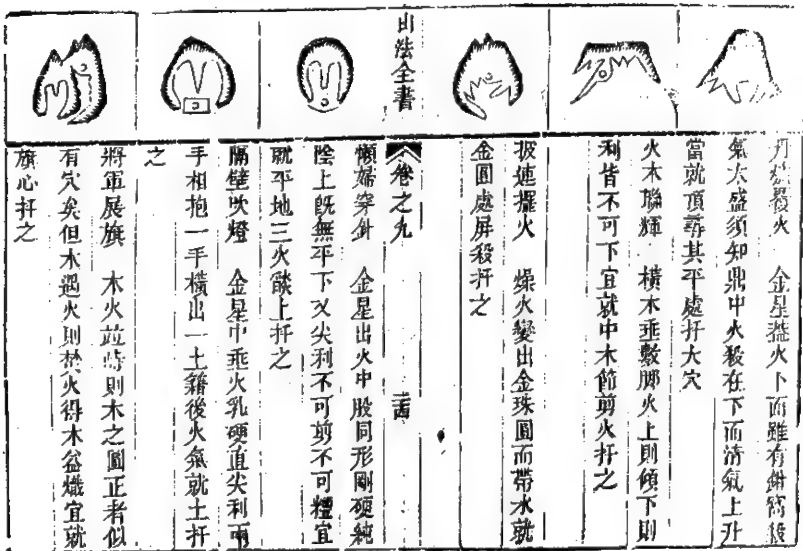 丹㷊發火　金星蓋火下面雖有鉗窩後
氣大盛須知鼎中火殺在下而清氣上升
當就頂尋其平處扦大穴
火木聯輝　橫木垂數脚火上則傾下則
利皆不可下宜就中木節剪火扦之
披連擺火　燥火變出金珠圓而帶水就
金圓處屏殺扦之
山法全書
卷之九
二十四
懶婦穿針　金星出火中股同形剛硬純
陰上既無平下又尖利不可剪不可糧宜
就平地三火燄上扦之
隔壁吹燈　金星中垂火乳硬直尖利兩
手相抱一手橫出一土籍後火氣就土扦
之
將軍展旗　木火並峙則木之圓正者似
有穴矣但木遇火則焚火得木益熾宜就
旗心扦之